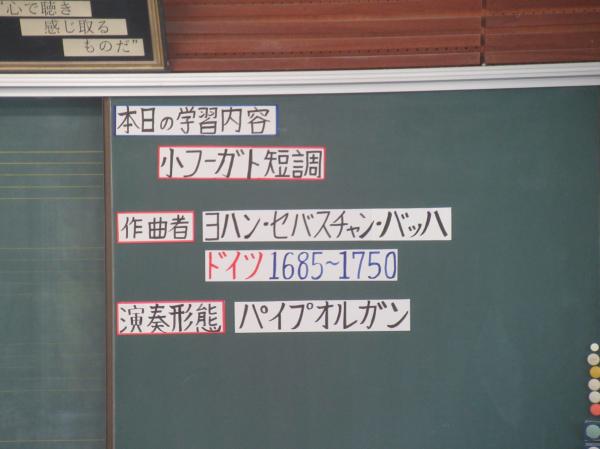 “心で聴き
感じ取る
ものだ”
本日の学習内容
小フーガト短調
作曲者 ヨハン・セバスチャン・バッハ
ドイツ 1685~1750
演奏形態 パイプオルガン